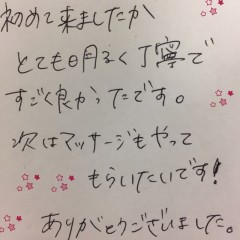 初めて来ましたが
とても明るく丁寧で
すごく良かったです。
次はマッサージもやって
もらいたいです!
ありがとうございました。